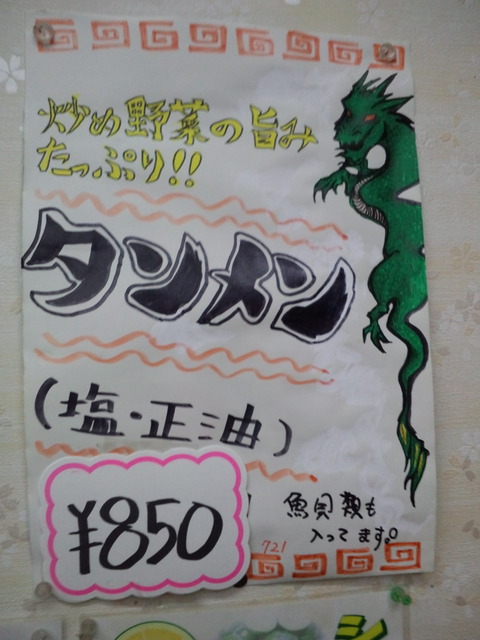 炒め野菜の旨み
たっぷり!!
タンメン
(塩・正油)
¥850
魚貝類も
入ってます。
721